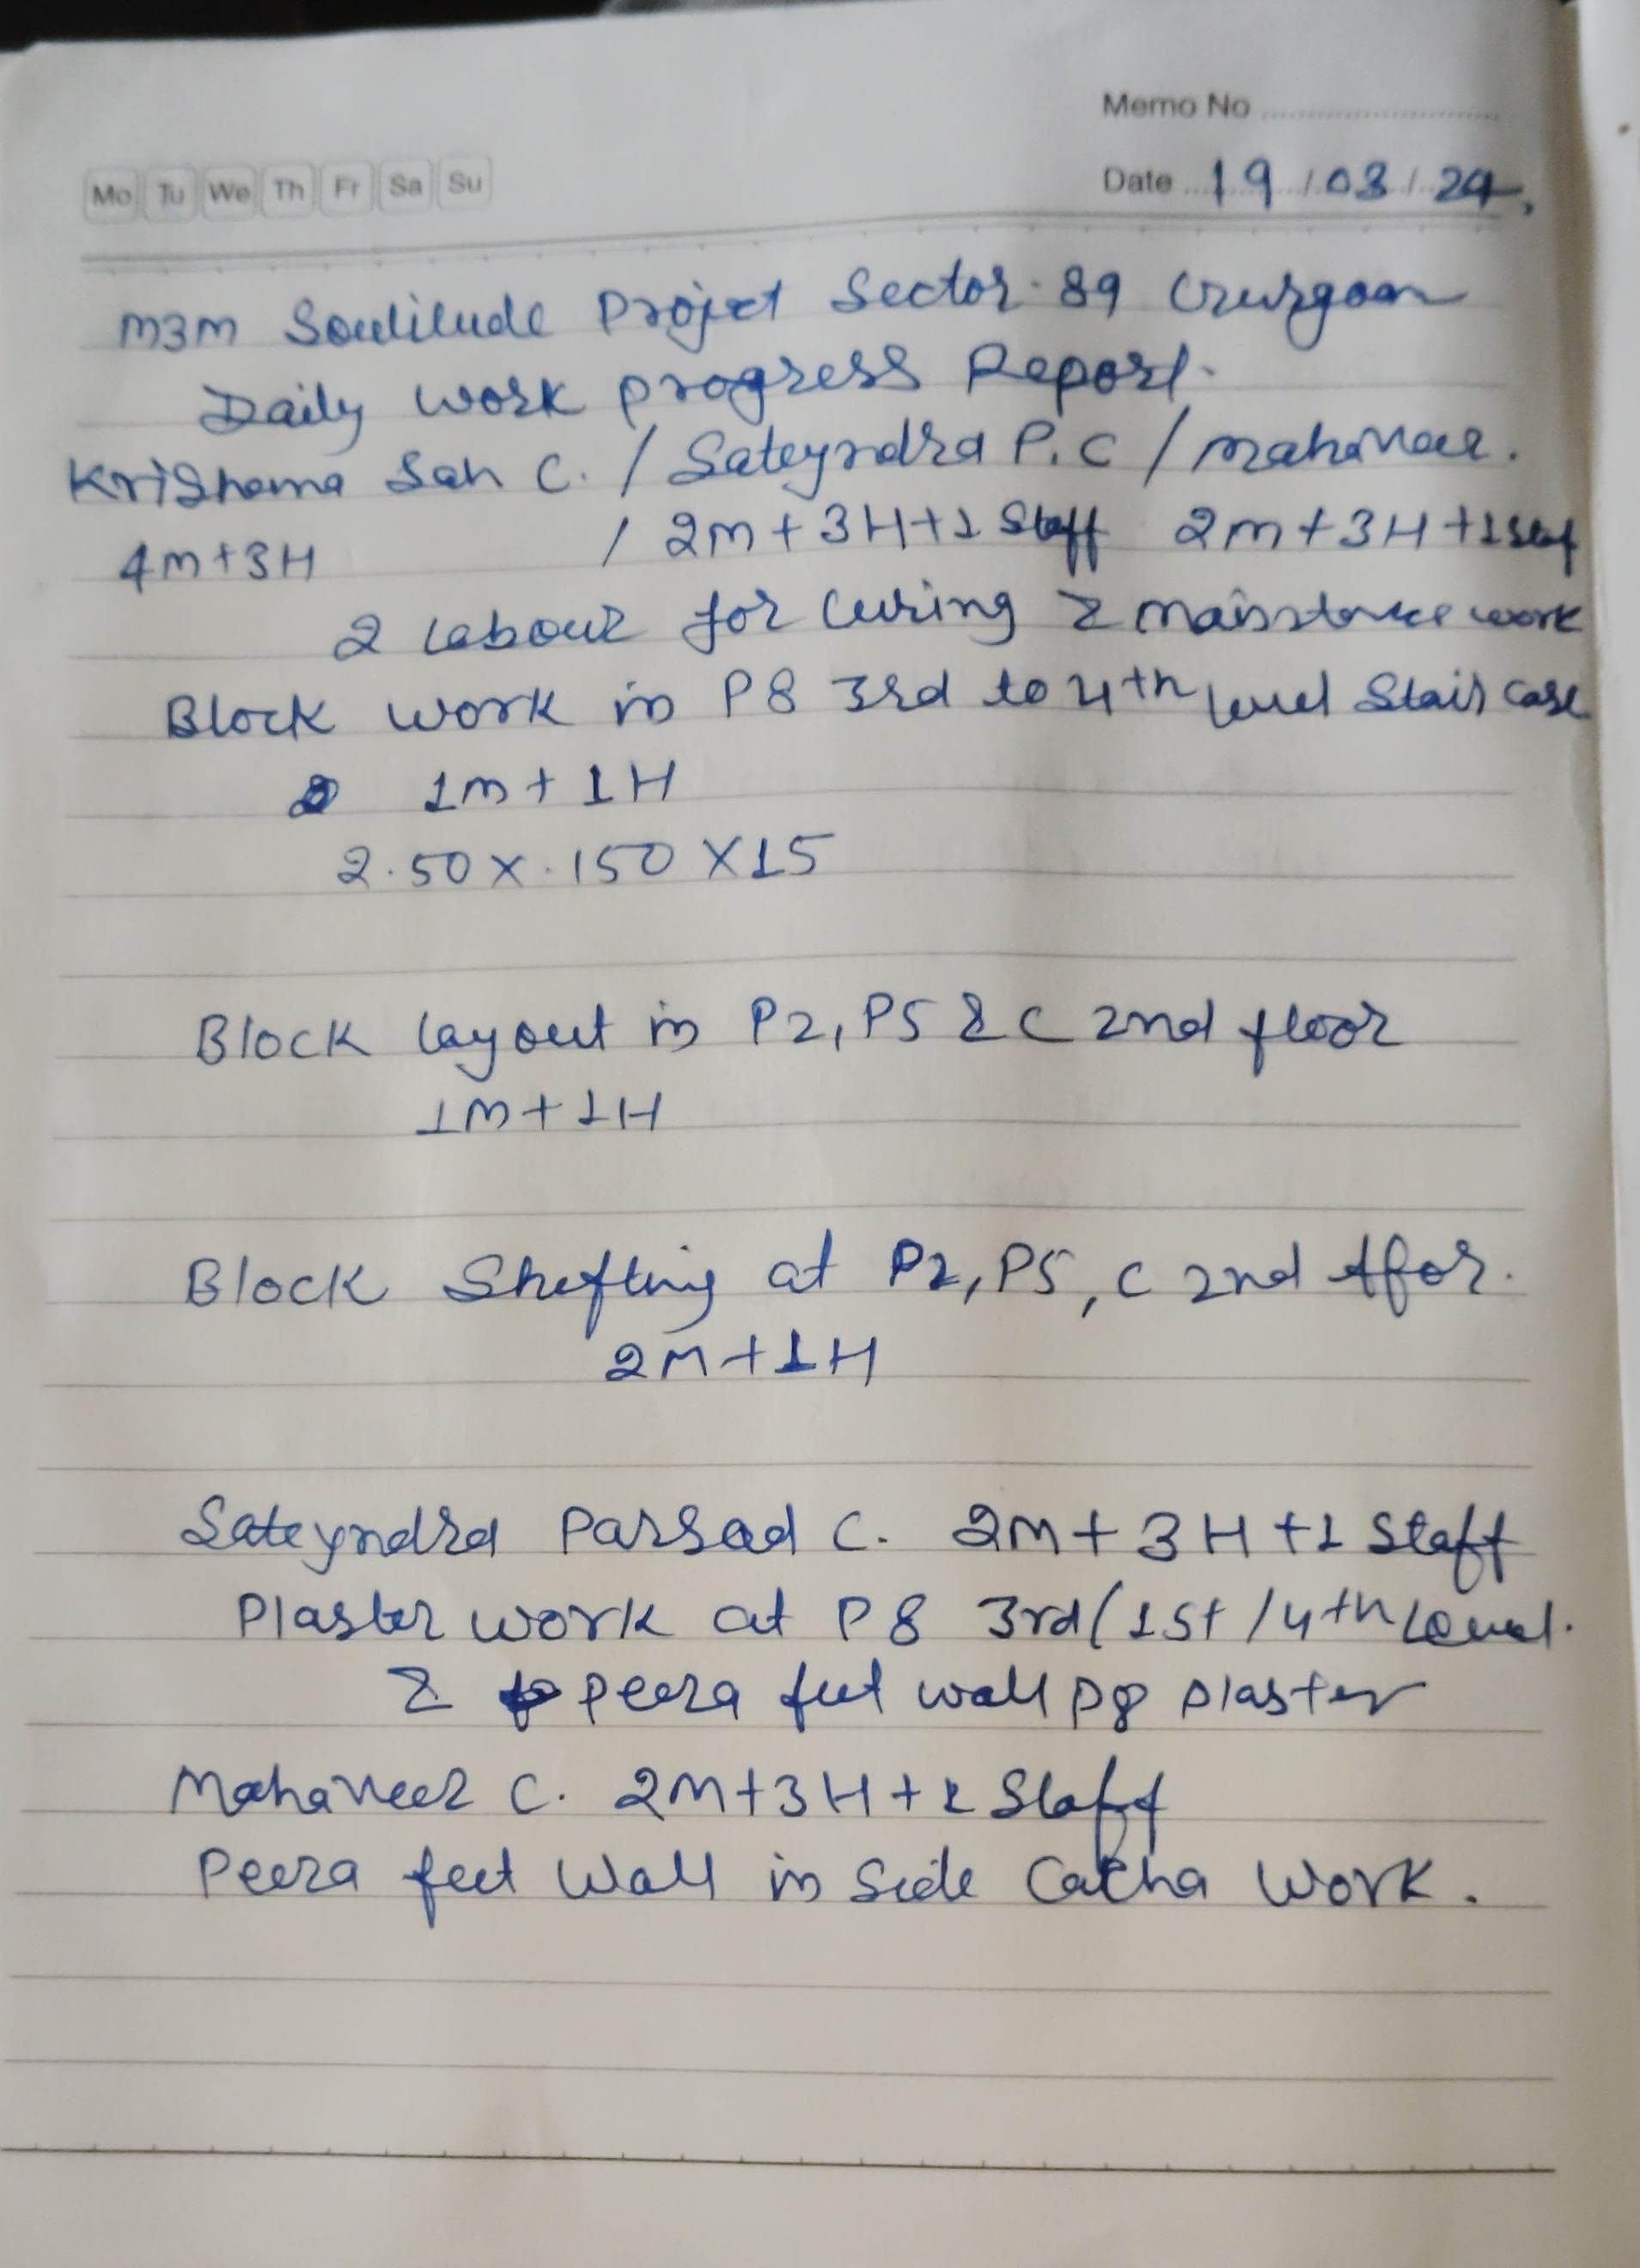 Memo No
Mo Tu We Th Fr Sa Su
Date 19/03/24,
M3M Soulilude Project Sector-89 Gurgaon
Daily Work progress Report.
Krishana Sah C. / Sateyndra P.C / Mahaveer.
4m+3H / 2m+3H+1 Staff 2m+3H+1 Staf
2 Labour for Curing & work
Block Work in P8 3rd to 4th level Stair Case
1m+1H
2.50x.150X15
Block layout in P2, P5 & C 2nd floor
1M+1H
Block Shefting at P2, P5, C 2nd
2M+1H
Sateyndra Parsad C. 2M+3H+1 Staff
Plaster work at P8 3rd(1st/4th Level.
& Peera feet wall P8 Plaster
Mahaveer C. 2M+3H+1 Staff
Peera feet Wall in Side Catcha Work.